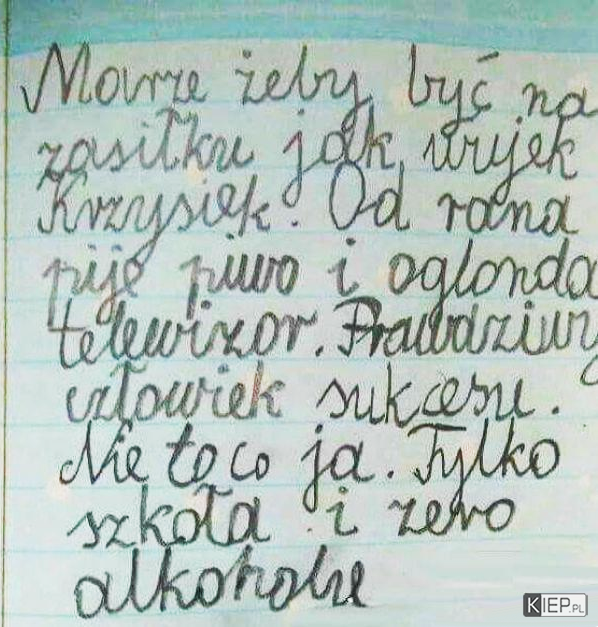 Marze żeby być na
zasiłku jak wujek
Krzysiek. Od rana
pije piwo i oglonda
telewizor. Prawdziwy
człowiek sukcesu.
Nie to co ja. Tylko
szkoła i zero
alkoholu
KIEP.PL